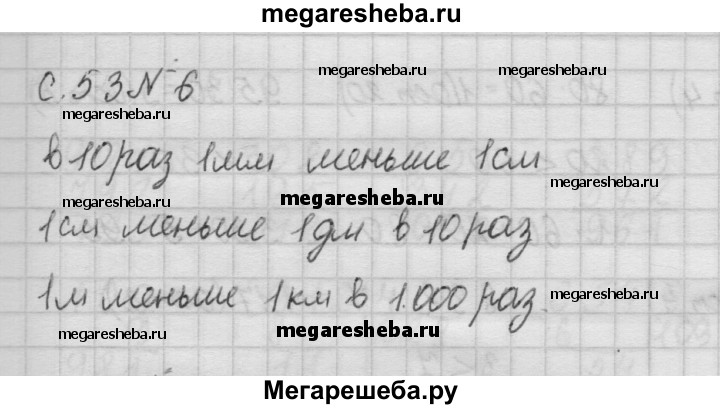 megaresheba.ru
С. 53 № 6
megaresheba.ru megaresheba.ru
megaresheba.ru
в 10 раз 1мм меньше 1см
megaresheba.ru
megaresheba.ru megaresheba.ru
1см меньше 1дм в 10 раз
1м меньше 1км в 1.000 раз.
megaresheba.ru
megaresheba.ru
megaresheba.ru
Мегарешеба.ру